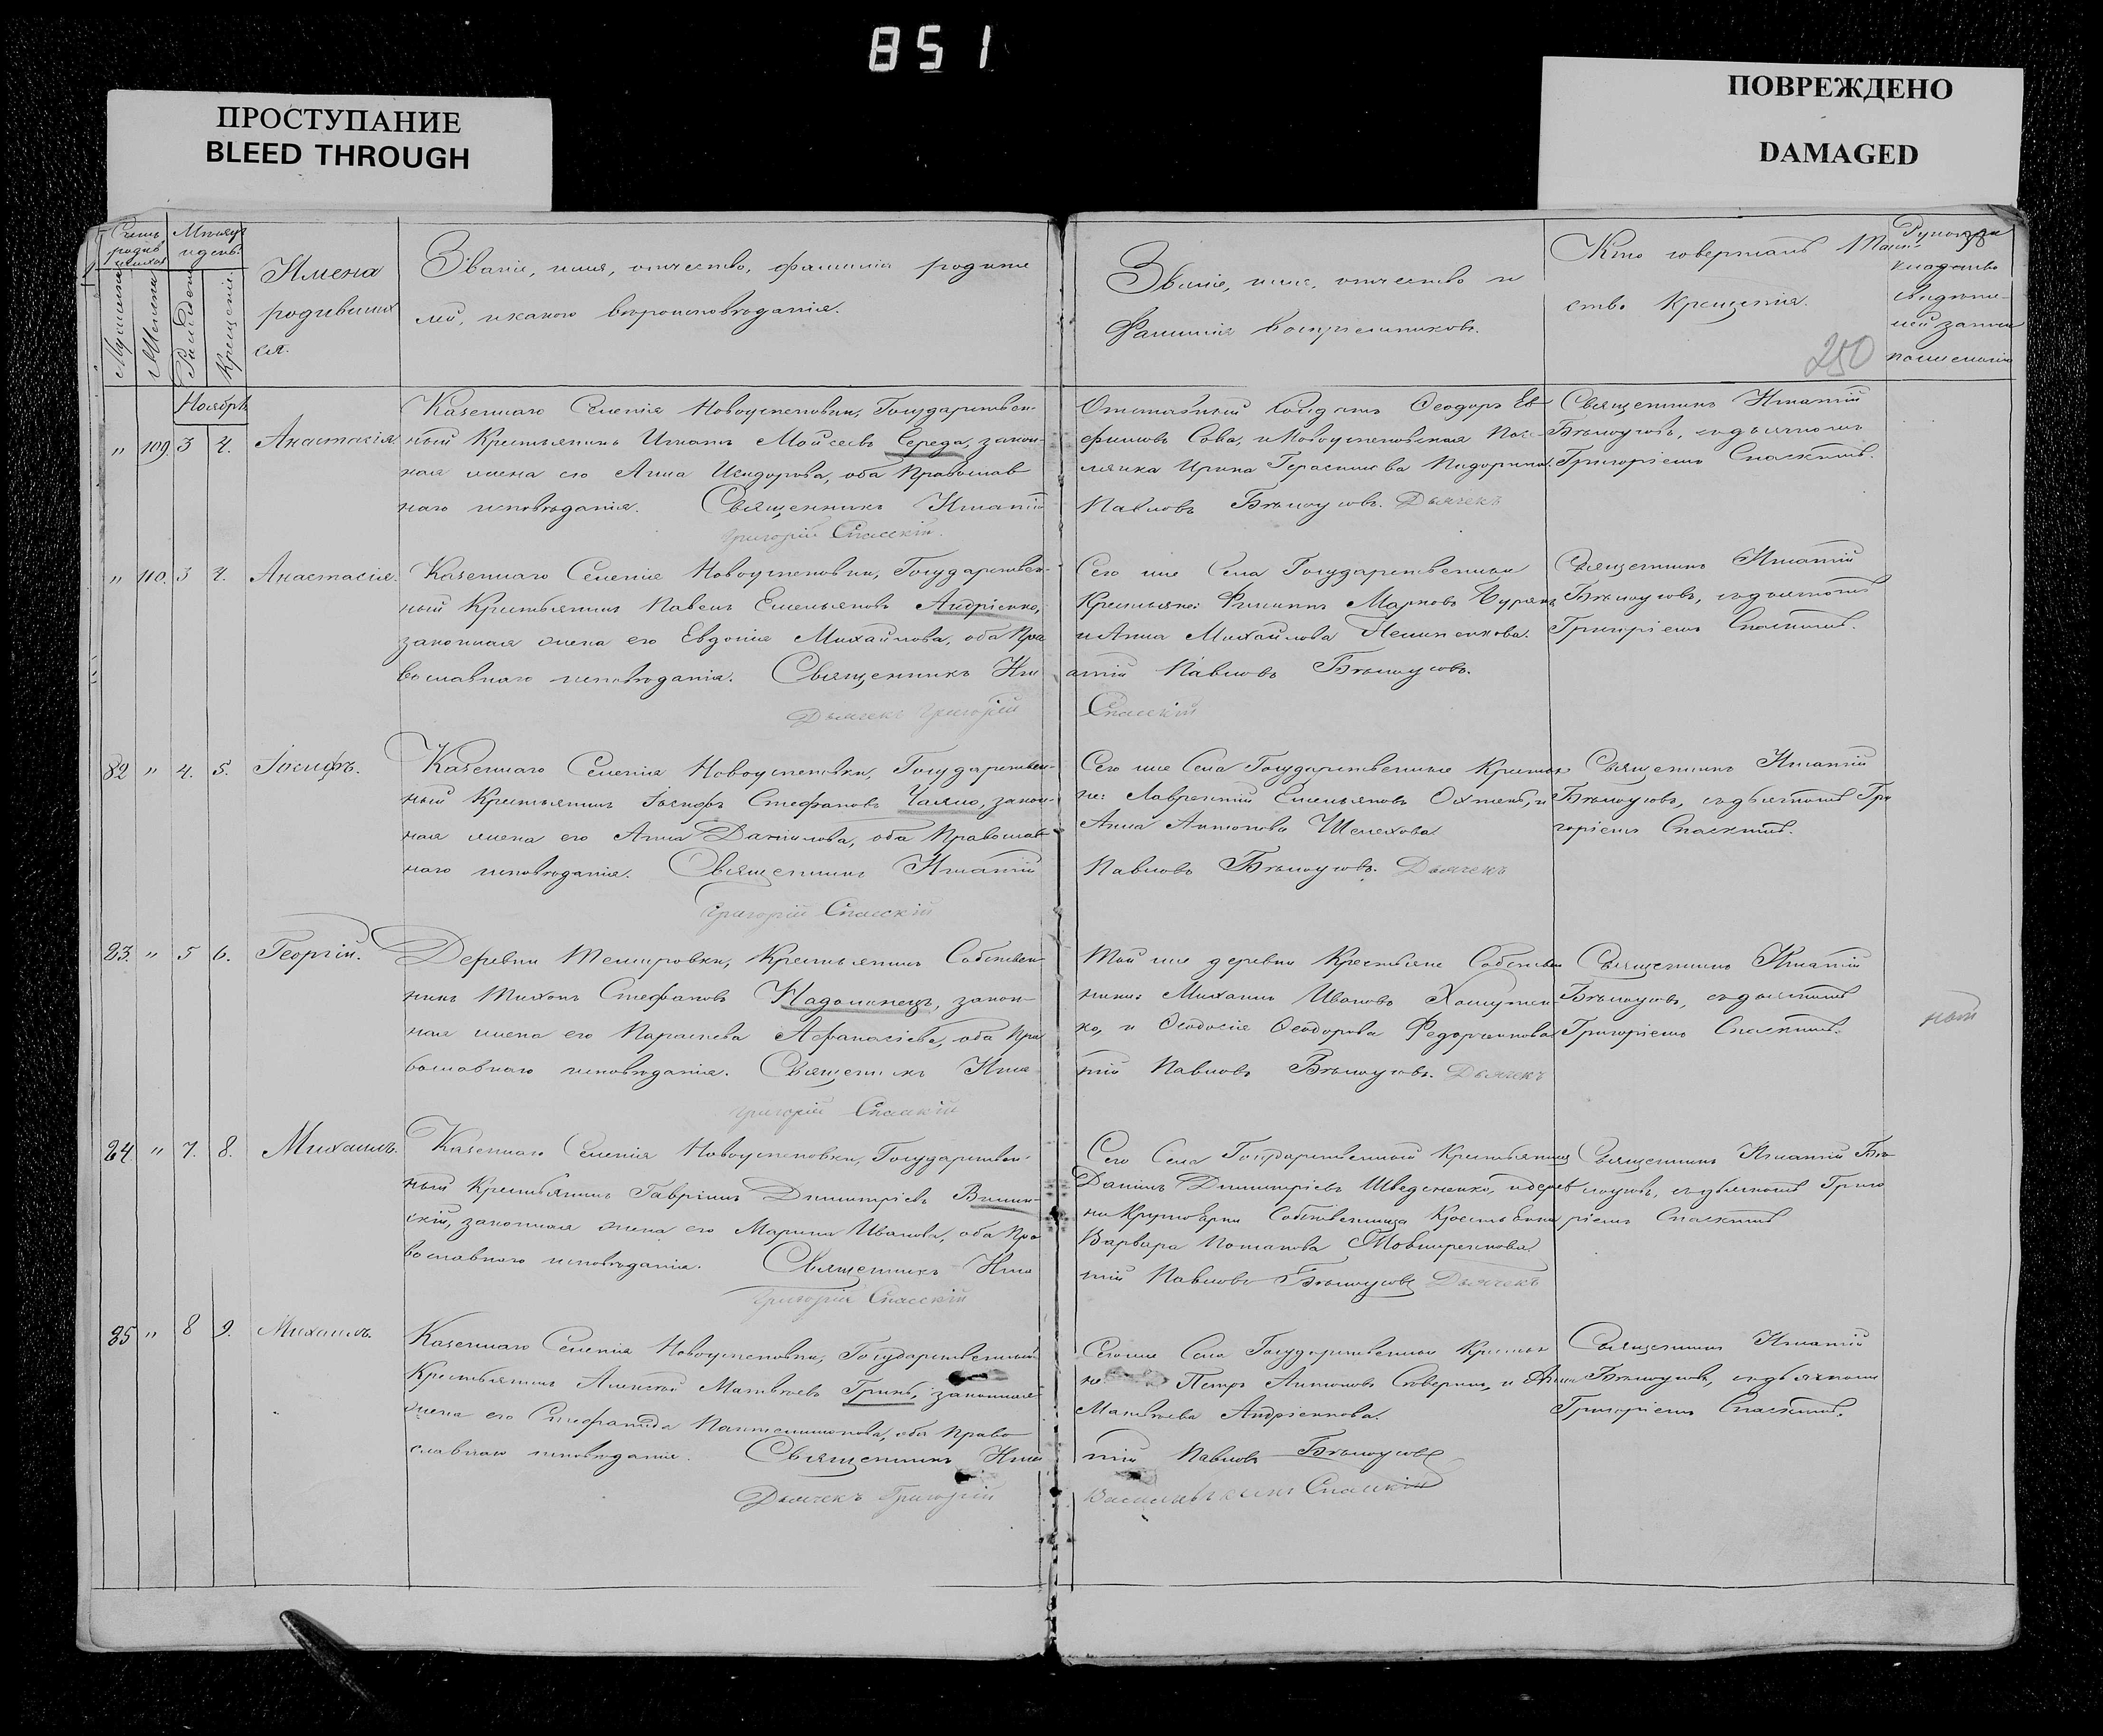 851
ПРОСТУПАНИЕ
BLEED THROUGH
ПОВРЕЖДЕНО
DAMAGED
Счетъ родив шихся
Мужеска
Женска
Мѣсяцъ и день.
Рожденія
Крещенія.
Имена родившихся.
Званіе, имя, отчество, фамилія родите
лей, и какого вѣроисповѣданія.
Званіе, имя, отчество и
Фамилія Воспріемниковъ.
Кто совершалъ Таин
ство Крещенія.
250
Ноябрь
" 109. 3 4. Анастасія
Казеннаго Селенія Новоуспеновки, Государствен-
ный Крестьянинъ Игнатъ Моисеевъ Середа, закон-
ная жена его Анна Исидорова, оба Православ
наго исповѣданія. Священникъ Игнатій
Григорій Спасскій.
Отставный Солдатъ Ѳеодоръ Ев
фимовъ Сова, и Новоуспеновская Посе-
лянка Ирина Герасимова
Павловъ Бѣлоусовъ. Дьячекъ
Священникъ Игнатій
Бѣлоусовъ, съ дьячкомъ
Григоріемъ Спасскимъ.
" 110. 3 4. Анастасія.
Казеннаго Селенія Новоуспеновки, Государствен-
ный Крестьянинъ Павелъ Емельяновъ Андріенко,
законная жена его Евдокія Михайлова, оба Пра
вославнаго исповѣданія. Священникъ Игн
Дьячекъ Григорій
Сего же Села Государственные
Крестьяне: Филиппъ Марковъ Бурякъ
и Анна Михайлова
атій Павловъ Бѣлоусовъ.
Спасскій
Священникъ Игнатій
Бѣлоусовъ, съ дьячкомъ
Григоріемъ Спасскимъ.
82 " 4. 5. Іосифъ.
Казеннаго Селенія Новоуспеновки, Государствен-
ный Крестьянинъ Іосифъ Стефановъ Чалло, закон-
ная жена его Анна Даніилова, оба Православ
наго исповѣданія. Священникъ Игнатій
Григорій Спасскій
Сего же Села Государственные Крестья
не: Лаврентій Емельяновъ Охтень, и
Анна Антонова Шелехова
Павловъ Бѣлоусовъ. Дьячекъ
Священникъ Игнатій
Бѣлоусовъ, съ дьячкомъ Гри
горіемъ Спасскимъ.
83. " 5 6. Георгій.
Деревни Темировки, Крестьянинъ Собствен
никъ Тихонъ Стефановъ Надолинецъ, закон-
ная жена его Параскева Афанасіева, оба Пра
вославнаго исповѣданія. Священникъ Игна
Григорій Спасскій
Той же деревни Крестьяне Собствен
ники: Михаилъ Ивановъ Хомутен
ко, и Ѳеодосія Ѳеодорова Федорченкова
тій Павловъ Бѣлоусовъ. Дьячекъ
Священникъ Игнатій
Бѣлоусовъ, съ дьячкомъ
Григоріемъ Спасскимъ.
84. " 7. 8. Михаилъ.
Казеннаго Селенія Новоуспеновки, Государствен-
ный Крестьянинъ Гавріилъ Димитріевъ Вишин-
скій, законная жена его Марина Иванова, оба Пра
вославнаго исповѣданія. Священникъ Игна
Григорій Спасскій
Сего Села Государственный Крестьянинъ
Даніилъ Димитріевъ Шведененко, и дерев
ни Собственница Крестьянка
Варвара Потапова
тій Павловъ Бѣлоусовъ Дьячекъ
Священникъ Игнатій Бѣ
лоусовъ, съ дьячкомъ Григо
ріемъ Спасскимъ
85 " 8 9. Михаилъ.
Казеннаго Селенія Новоуспеновки, Государственный
Крестьянинъ Алексѣй Матвѣевъ Гринь, законная
жена его Стефанида Пантелимонова, оба Право
славнаго исповѣданія. Священникъ Игна
Дьячекъ Григорій
Сего же Села Государственные Крестья
не Петръ Антоновъ Северинъ, и Анна
Матвѣева Андріенкова.
тій Павловъ Бѣлоусовъ
Спасскій
Священникъ Игнатій
Бѣлоусовъ, съ дьячкомъ
Григоріемъ Спасскимъ.